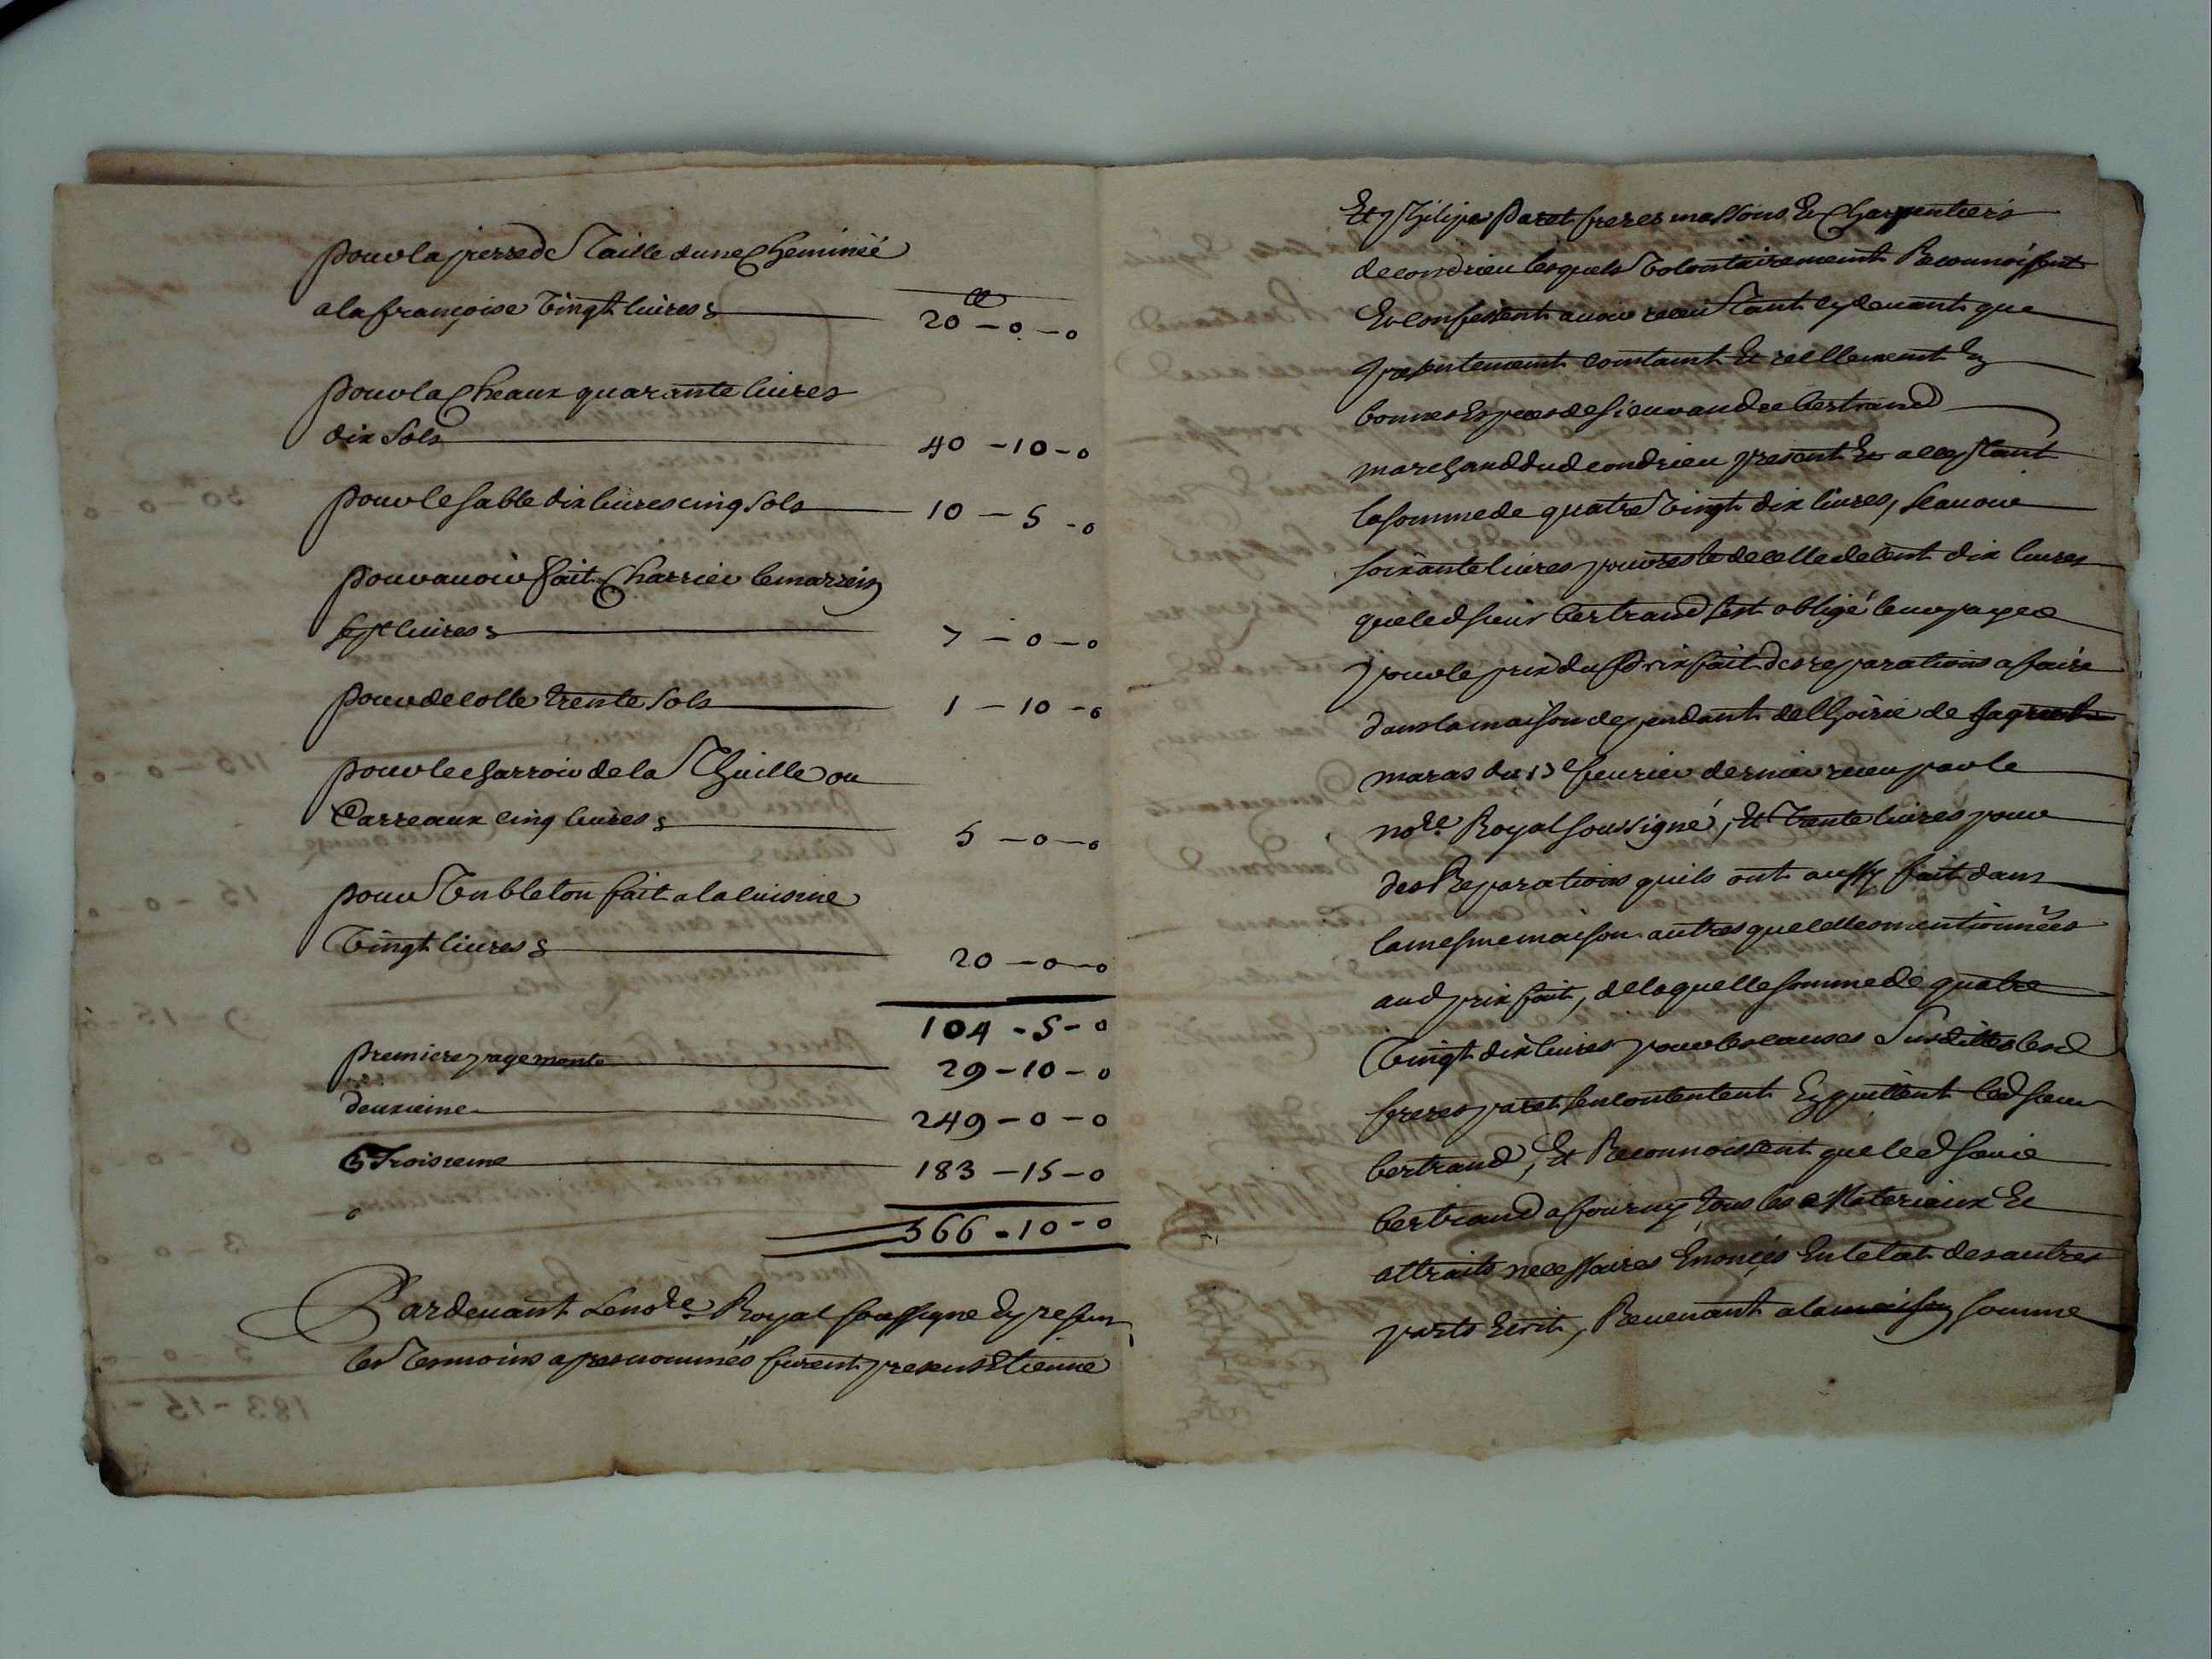 pour la pierre de Taille dune Cheminée
a la françoise vingt livres 20 - 0 - 0
pour la Cheaux quarante livres
dix sols 40 - 10 - 0
pour le sable dix livres cinq sols 10 - 5 - 0
pour avoir fait Charrier le marrein
sept livres 7 - 0 - 0
pour de colle trente sols 1 - 10 - 0
pour le charroir de la Thuille ou
Carreaux cinq livres 5 - 0 - 0
pour un bleton fait a la cuisine
Vingt livres 20 - 0 - 0
104 - 5 - 0
premiere page monte 29 - 10 - 0
deuxieme 249 - 0 - 0
Troisieme 183 - 15 - 0
566 - 10 - 0
Pardevant Le no.re Royal soussigne
les Temoins apres nommés furent presens Etienne
Et philipe Paret freres massons Et Charpentiers
de condrieu lesquels volontairement Reconnoissent
Et confessent avoir receu Tant cy devant que
presentement comtamt Et reellement En
bonnes Especes de sieur andré bertrand
marchand dud condrieu present Et acceptant
la somme de quatre vingt dix livres, scavoir
soixante livres pour reste de celle de cent dix livres
que led sieur bertrand s'est obligé leur payer
pour le prix du prix fait des reparations a faire
dans la maison dependant de l'hoirie de
maras du 13e fevrier dernier receu par le
no.re Royal soussigné, Et trente livres pour
des Reparations quils ont aussy fait dans
la mesme maison autres que celles mentionnées
aud prix fait, de laquelle somme de quatre
vingt dix livres pour les causes Susdittes lesd
freres paret sen contentent En quittent led sieur
bertrand, Et Reconnoissent que led sieur
bertrand a fourny tous les Materiaux Et
attraits necessaires Enoncés En letat des autres
parts Ecrit, Revenant a la somme